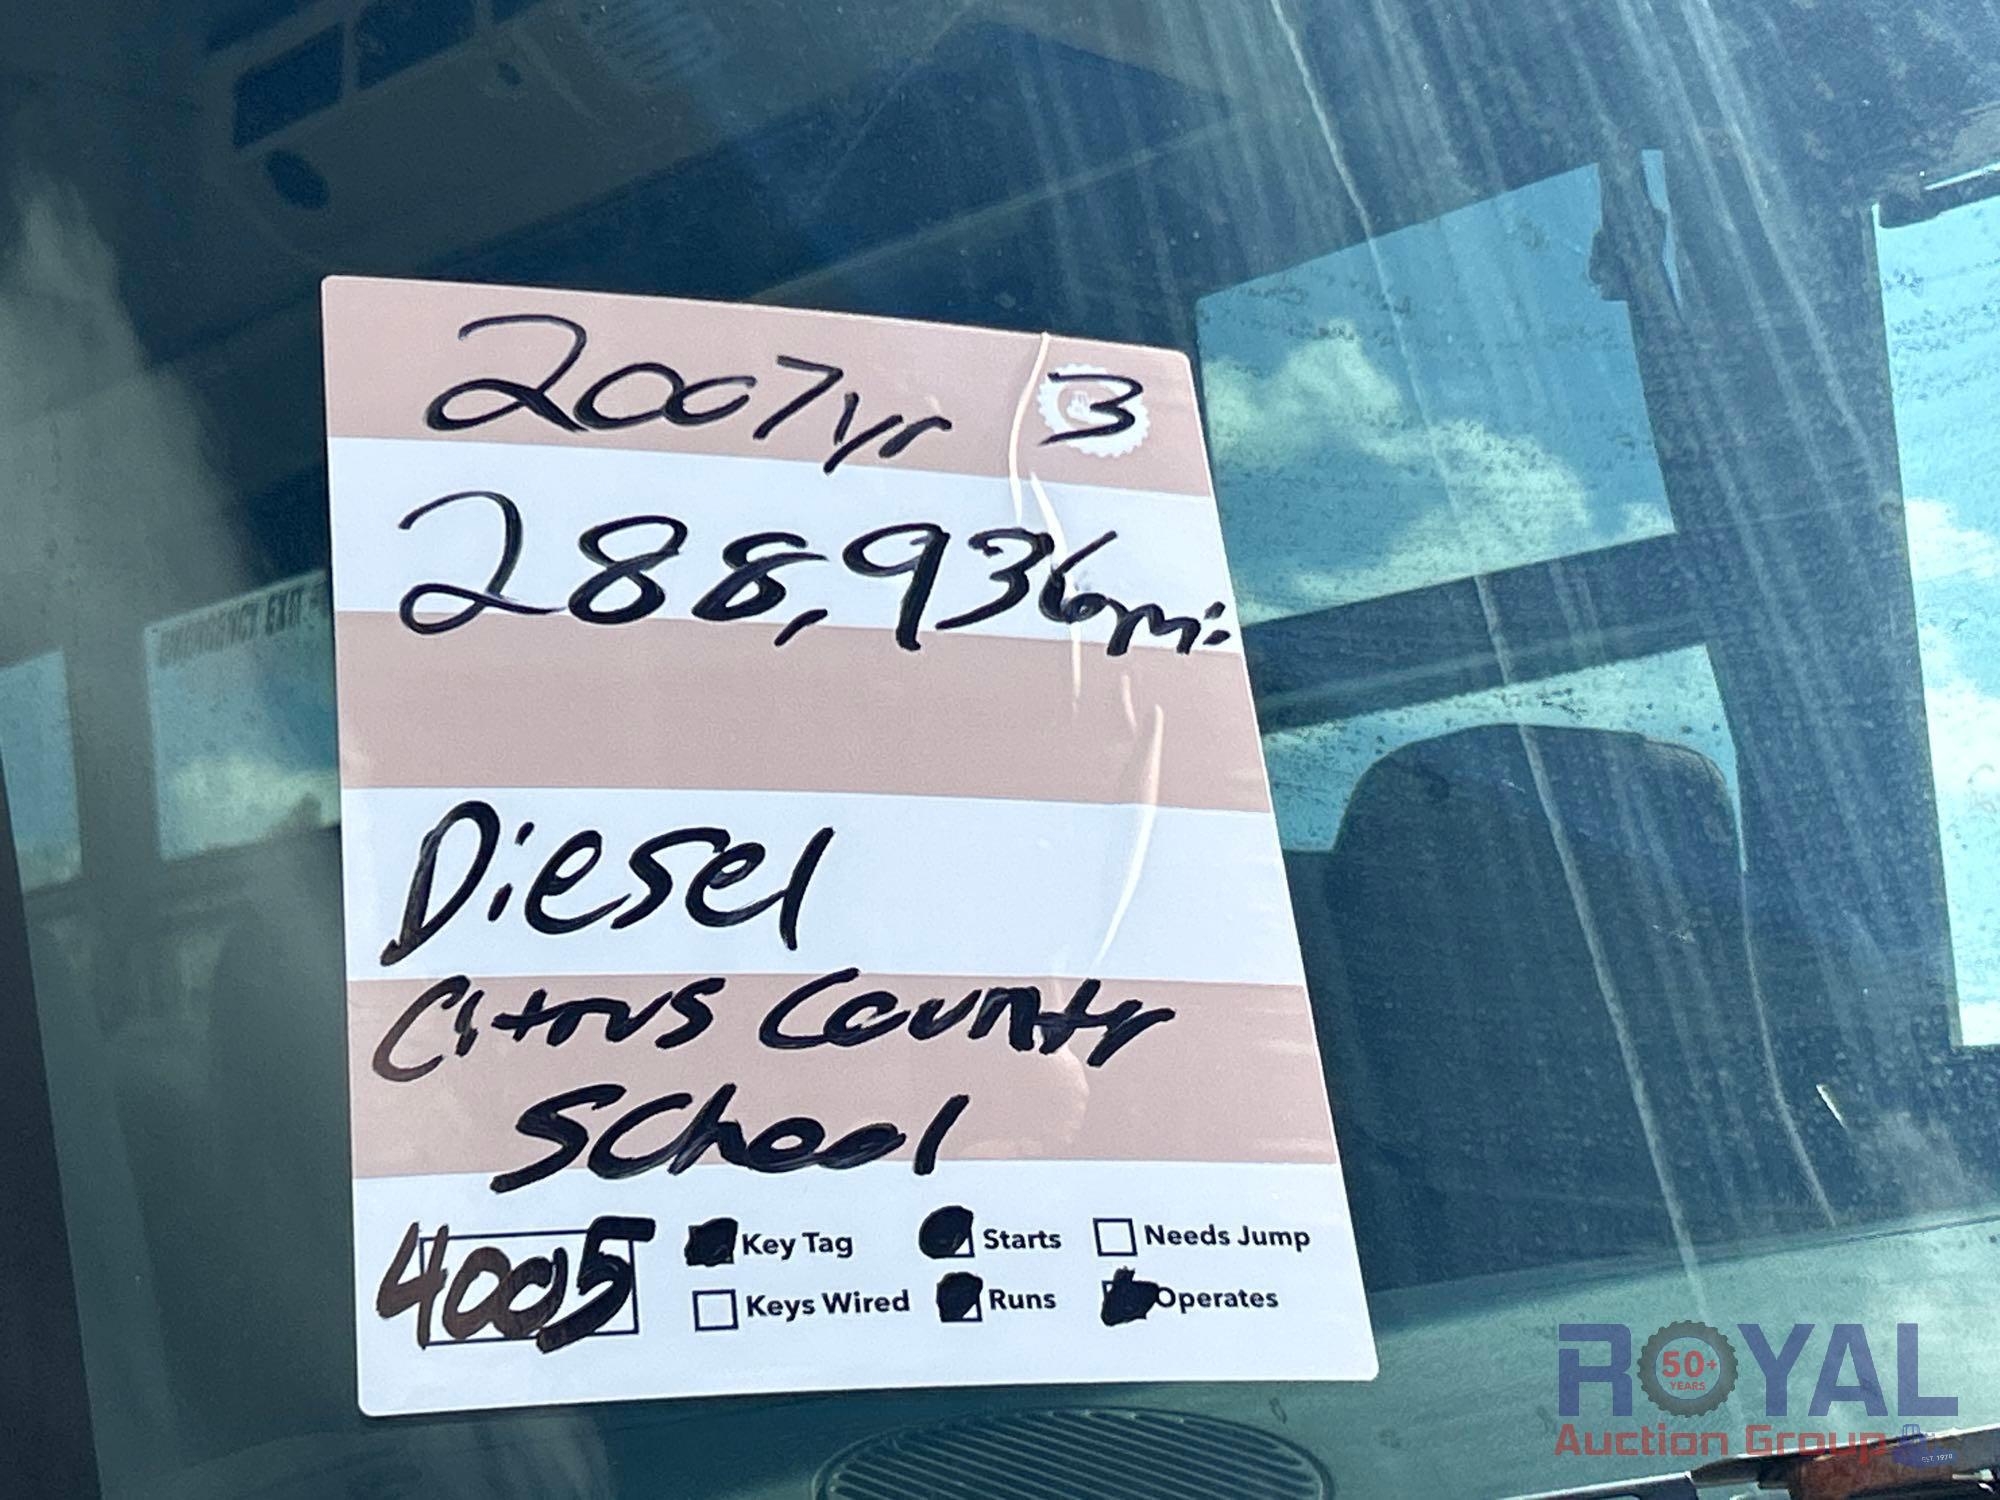 2007yr 3
288,936mi.
EMERGENCY EXIT
Diesel
Citrus County
School
4005
Key Tag Starts Needs Jump
Keys Wired Runs Operates
ROYAL
50+
YEARS
Auction Group
EST. 1970